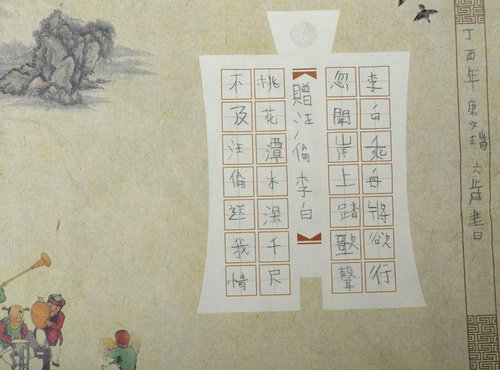 李白乘舟將欲行
忽聞岸上踏歌聲
贈汪倫 李白
桃花潭水深千尺
不及汪倫送我情
丁酉年 康文瑞 六歲書